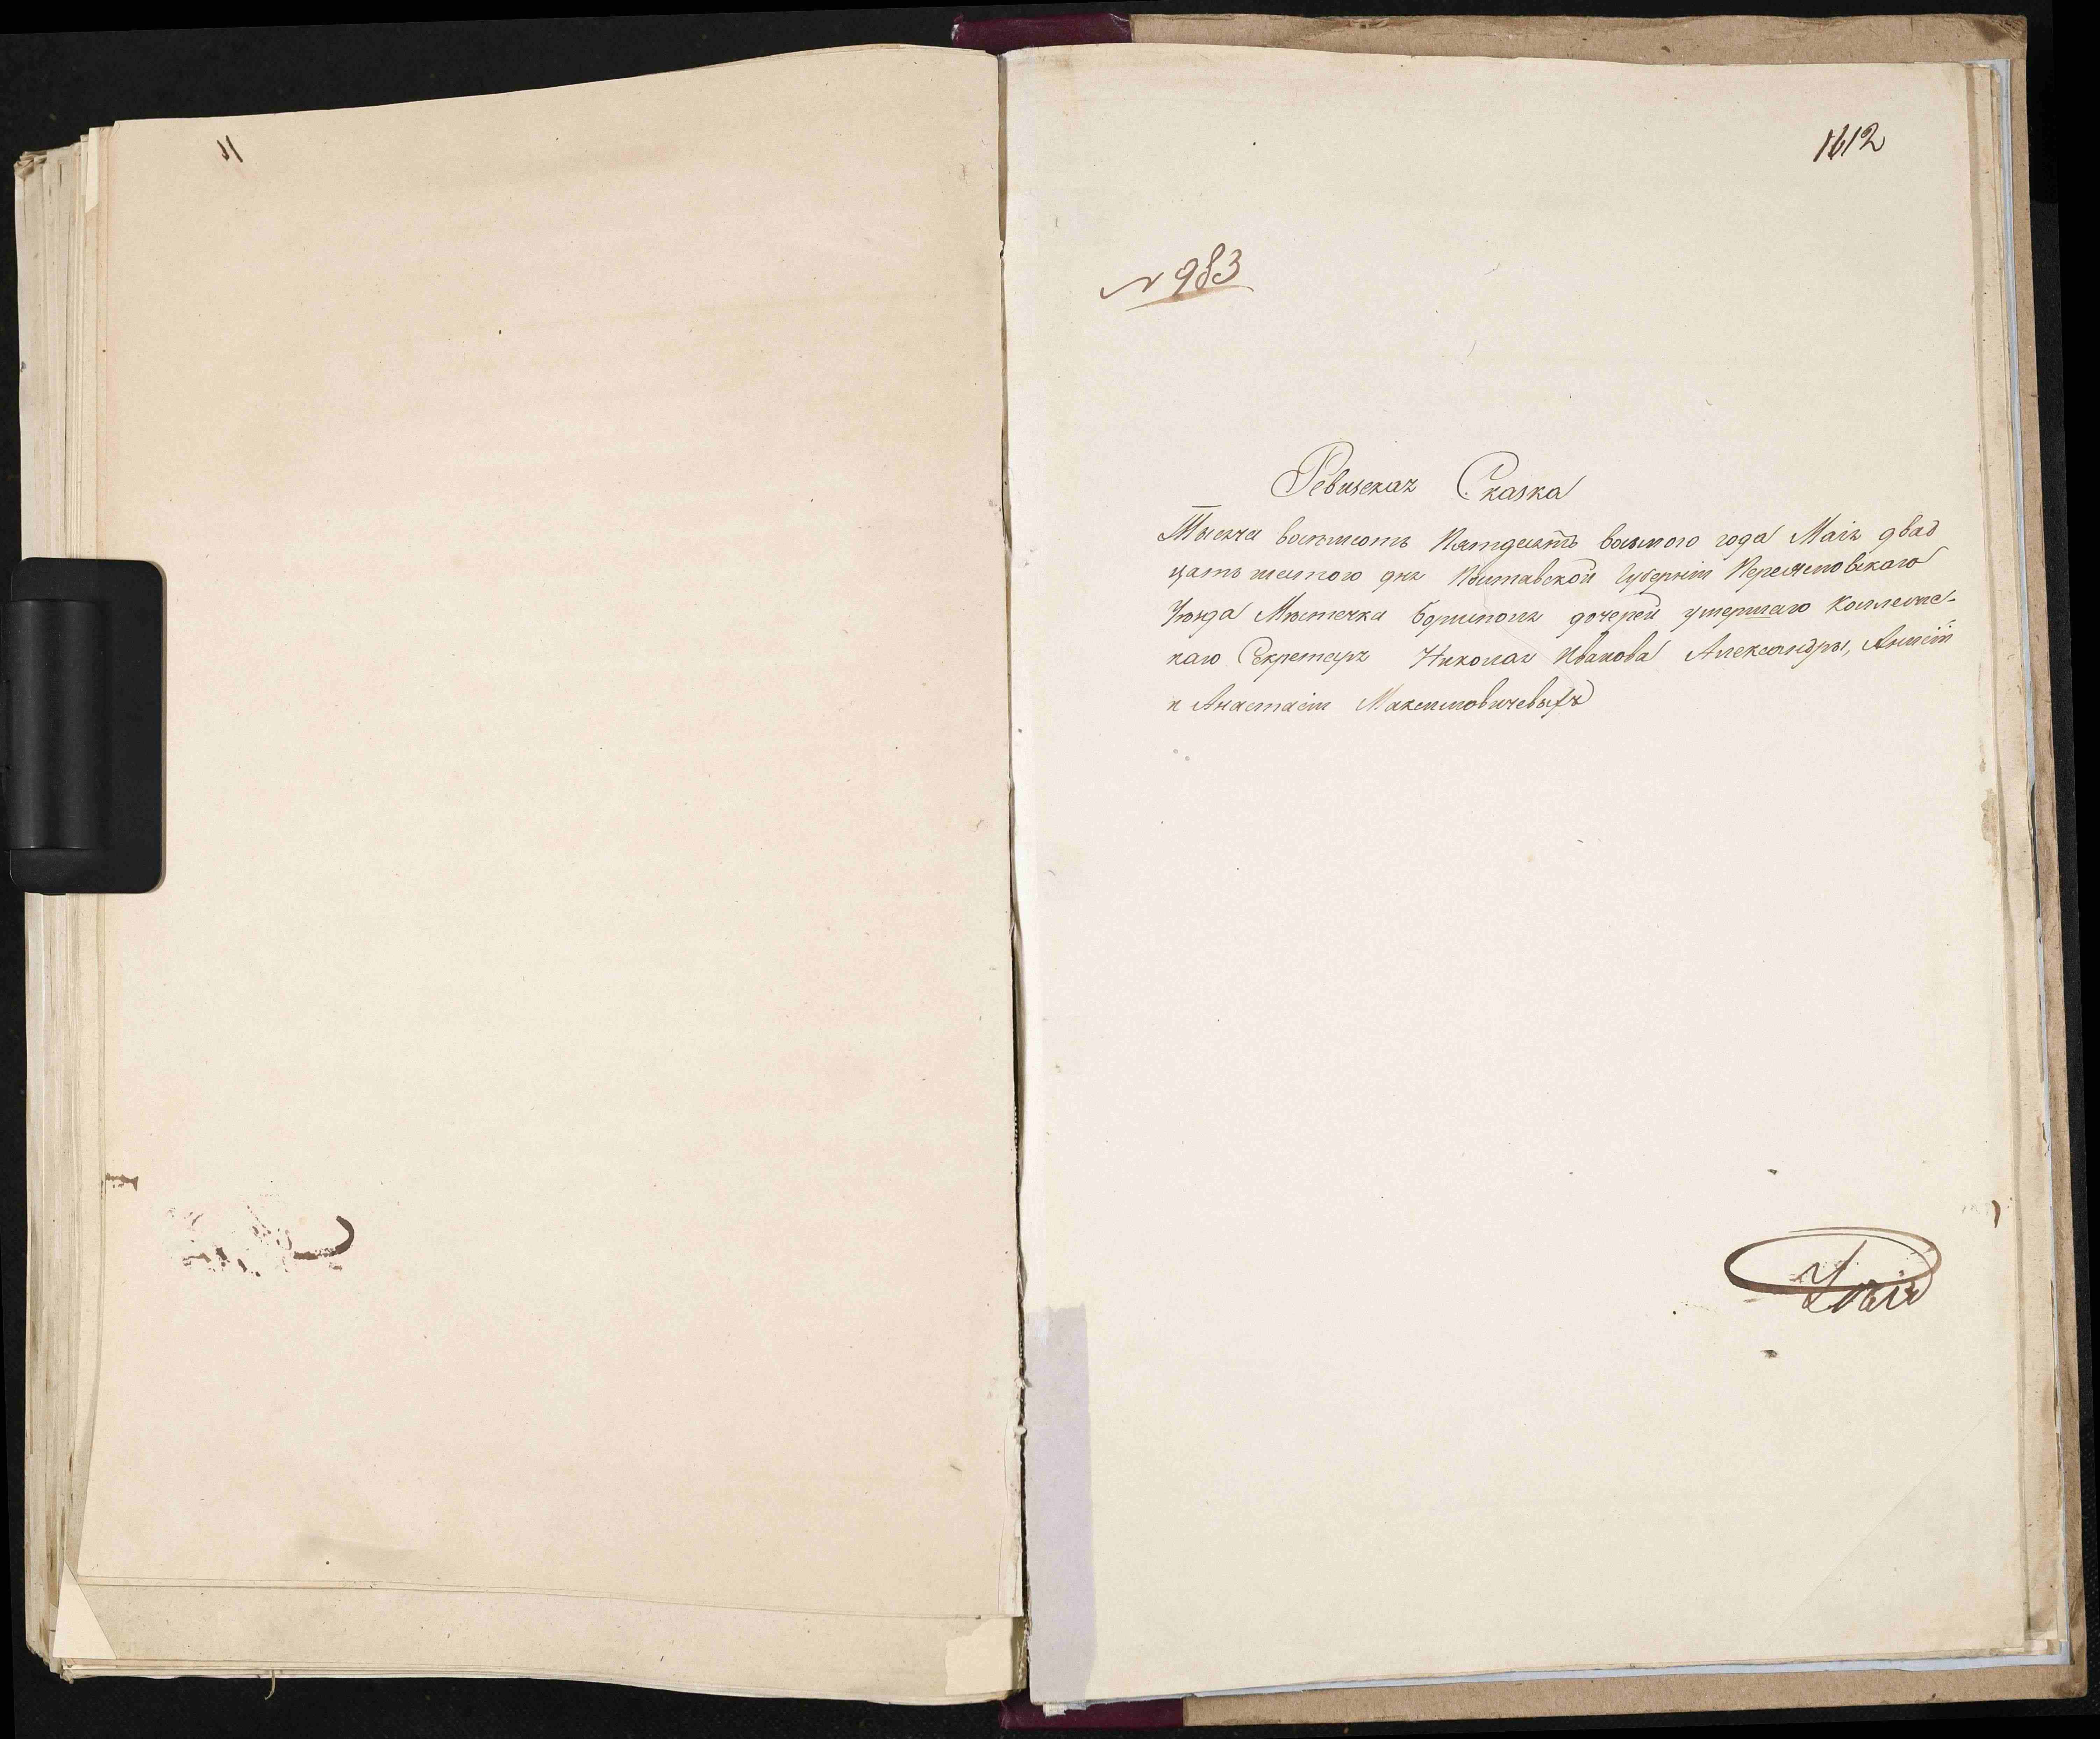 1612
№ 983
Ревизская Сказка
Тысяча восемьсотъ Пятдесятъ восьмого года Маія двад
цать шестого дня Полтавской Губерніи Переяславскаго
Уѣзда Мѣстечка Борисполя дочерей умершаго Коллежс-
каго Секретаря Николая Иванова Александры, Анны
и Анастасіи Максимовичевыхъ